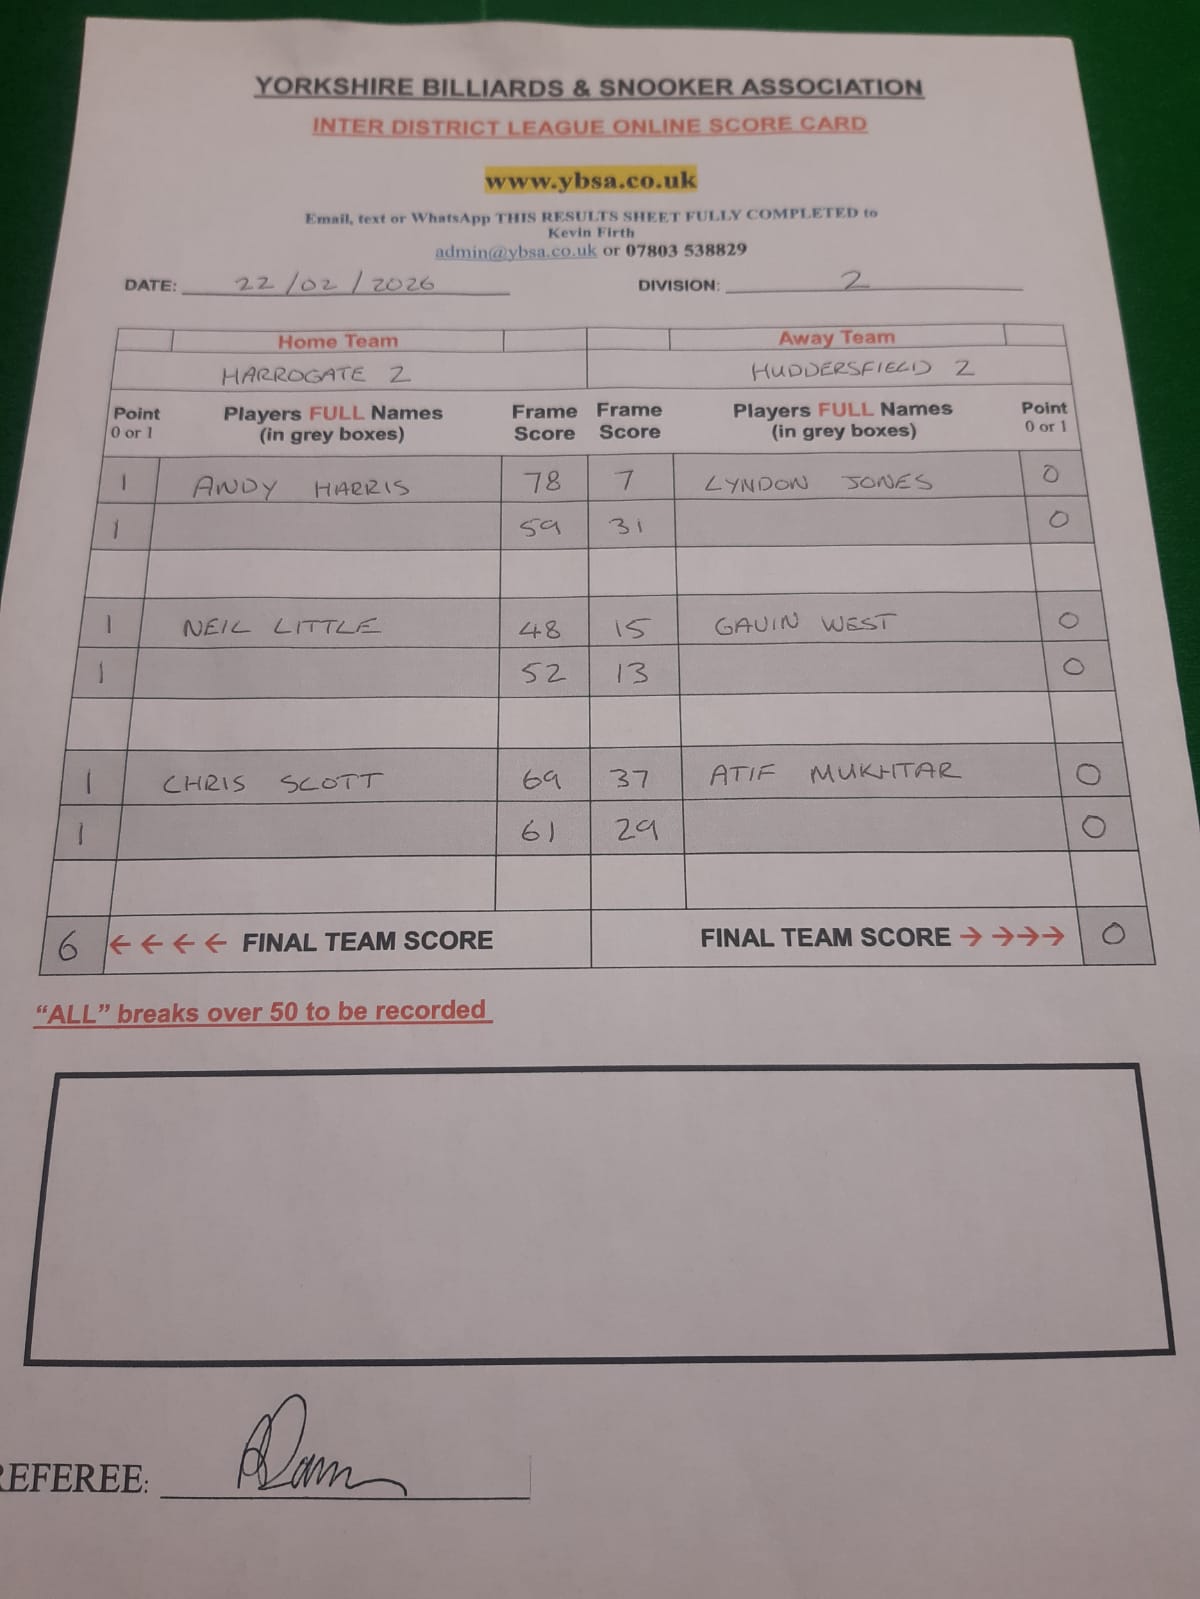 YORKSHIRE BILLIARDS & SNOOKER ASSOCIATION
INTER DISTRICT LEAGUE ONLINE SCORE CARD
www.ybsa.co.uk
Email, text or WhatsApp THIS RESULTS SHEET FULLY COMPLETED to
Kevin Firth
admin@ybsa.co.uk or 07803 538829
DATE: 22/02/2026 DIVISION: 2
Home Team Away Team
HARROGATE 2 HUDDERSFIELD 2
Point Players FULL Names Frame Frame Players FULL Names Point
0 or 1 (in grey boxes) Score Score (in grey boxes) 0 or 1
1 ANDY HARRIS 78 7 LYNDON JONES 0
1 59 31 0
1 NEIL LITTLE 48 15 GAVIN WEST 0
1 52 13 0
1 CHRIS SCOTT 69 37 ATIF MUKHTAR 0
1 61 29 0
6 ←←←← FINAL TEAM SCORE FINAL TEAM SCORE →→→→ 0
“ALL” breaks over 50 to be recorded
REFEREE: